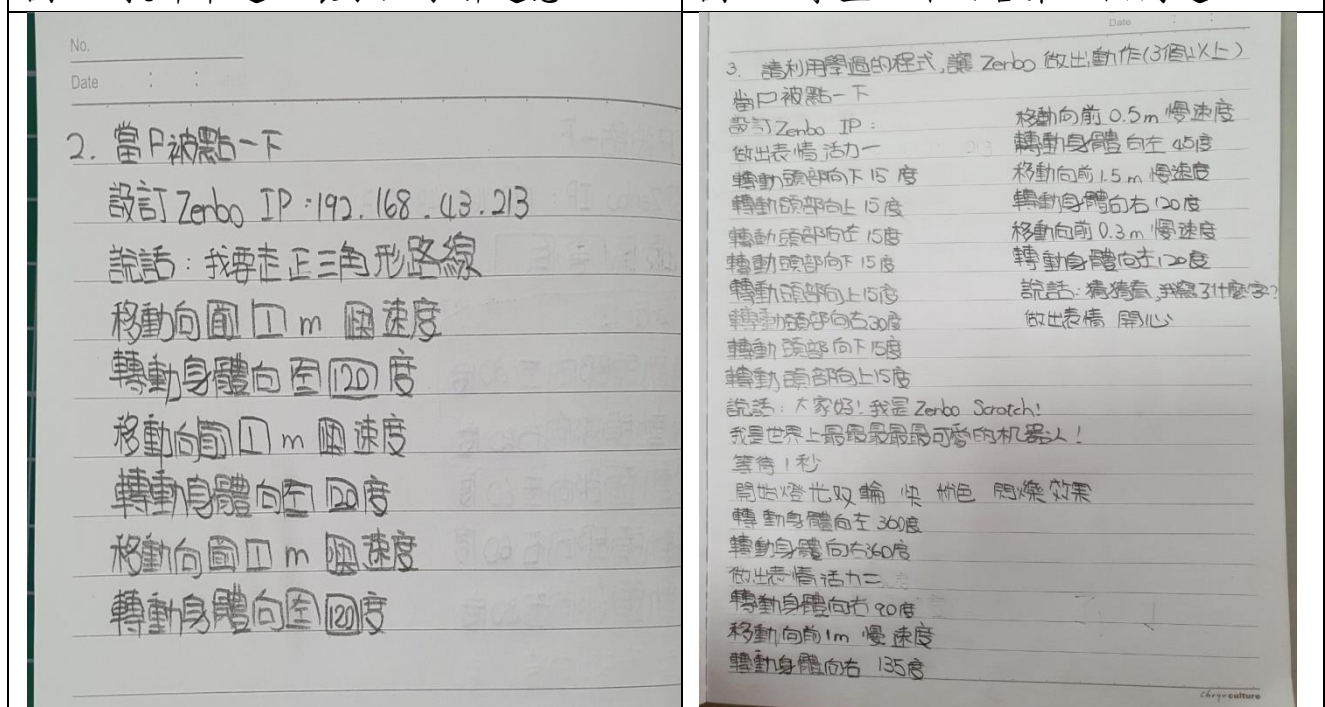 No.
Date : :
2. 當 P 被點一下
設訂 Zenbo IP : 192.168.43.213
說話 : 我要走正三角形路線
移動向前 1 m 慢速度
轉動身體向左 120 度
移動向前 1 m 慢速度
轉動身體向左 120 度
移動向前 1 m 慢速度
轉動身體向左 120 度
Date : :
3. 請利用學過的程式,讓 Zenbo 做出動作(3個以上)
當P被點一下
設訂 Zenbo IP :
做出表情 活力一
轉動頭部向下 15 度
轉動頭部向上 15 度
轉動頭部向左 15度
轉動頭部向下 15度
轉動頭部向上15度
轉動頭部向右30度
轉動頭部向下15度
轉動頭部向上15度
說話 : 大家好! 我是 Zenbo Scratch!
我是世界上最最最最最可愛的机器人!
等待 1 秒
開始燈光双輪 快 粉色 閃爍效果
轉動身體向左 360度
轉動身體向右360度
做出表情活力二
轉動身體向右 90度
移動向前1m 慢速度
轉動身體向右 135度
移動向前 0.5m 慢速度
轉動身體向左 45度
移動向前 1.5m 慢速度
轉動身體向右 120度
移動向前 0.3m 慢速度
轉動身體向左120度
說話 : 猜猜看,我寫了什麼字?
做出表情 開心